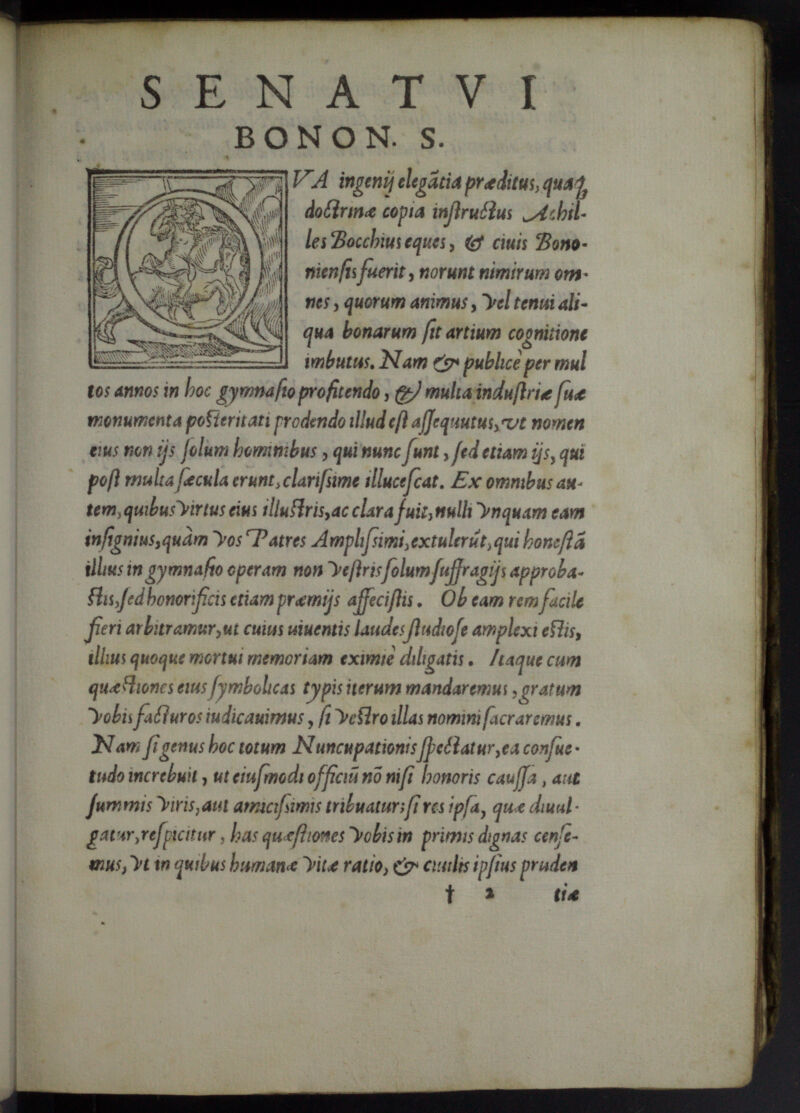 SENATVI
BONON. S.
QVA ingenij elegãtia præditus, quaq;
doctrinæ copia instructus Achil-
les Bocchius eques, & ciuis Bono-
niensis fuerit, norunt nimirum om-
nes, quorum animus, vel tenui ali-
qua bonarum sit artium cognitione
imbutus. Nam & publicè per mul
tos annos in hoc gymnasio profitendo, & multa industriæ suæ
monumenta posteritati prodendo illud est assequutus, vt nomen
eius non ijs solum hominibus, qui nunc sunt, sed etiam ijs, qui
post multa sæcula erunt, clarissime illucescat. Ex omnibus au-
tem, quibus virtus eius illustris, ac clara fuit, nulli vnquam eam
insignius, quàm vos Patres Amplissimi, extulerũt, qui honestã
illius in gymnasio operam non vestris solum suffragijs approba-
stis, sed honorificis etiam præmijs affecistis. Ob eam rem facile
fieri arbitramur, ut cuius uiuentis laudes studiose amplexi estis,
illius quoque mortui memoriam eximiè diligatis. Itaque cum
quæstiones eius symbolicas typis iterum mandaremus, gratum
vobis facturos iudicauimus, si vestro illas nomini sacraremus.
Nam si genus hoc totum Nuncupationis spectatur, ea consue-
tudo increbuit, ut eiusmodi officiũ nõ nisi honoris caussa, aut
summis viris, aut amicissimis tribuatur; si res ipsa, quæ diuul-
gatur, respicitur, has quæstiones vobis in primis dignas cense-
mus, vt in quibus humanæ vitæ ratio, & ciuilis ipsius pruden
† 2 tiæ